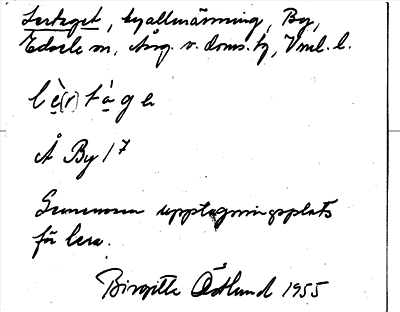 Lertaget, byallmänning, By,
Edsele sn, Ång. v. doms. tg, Vnl. l.
lè(r)tàga
Å By 1⁷
Gemensam upptagningsplats
för lera.
Birgitta Östlund 1955